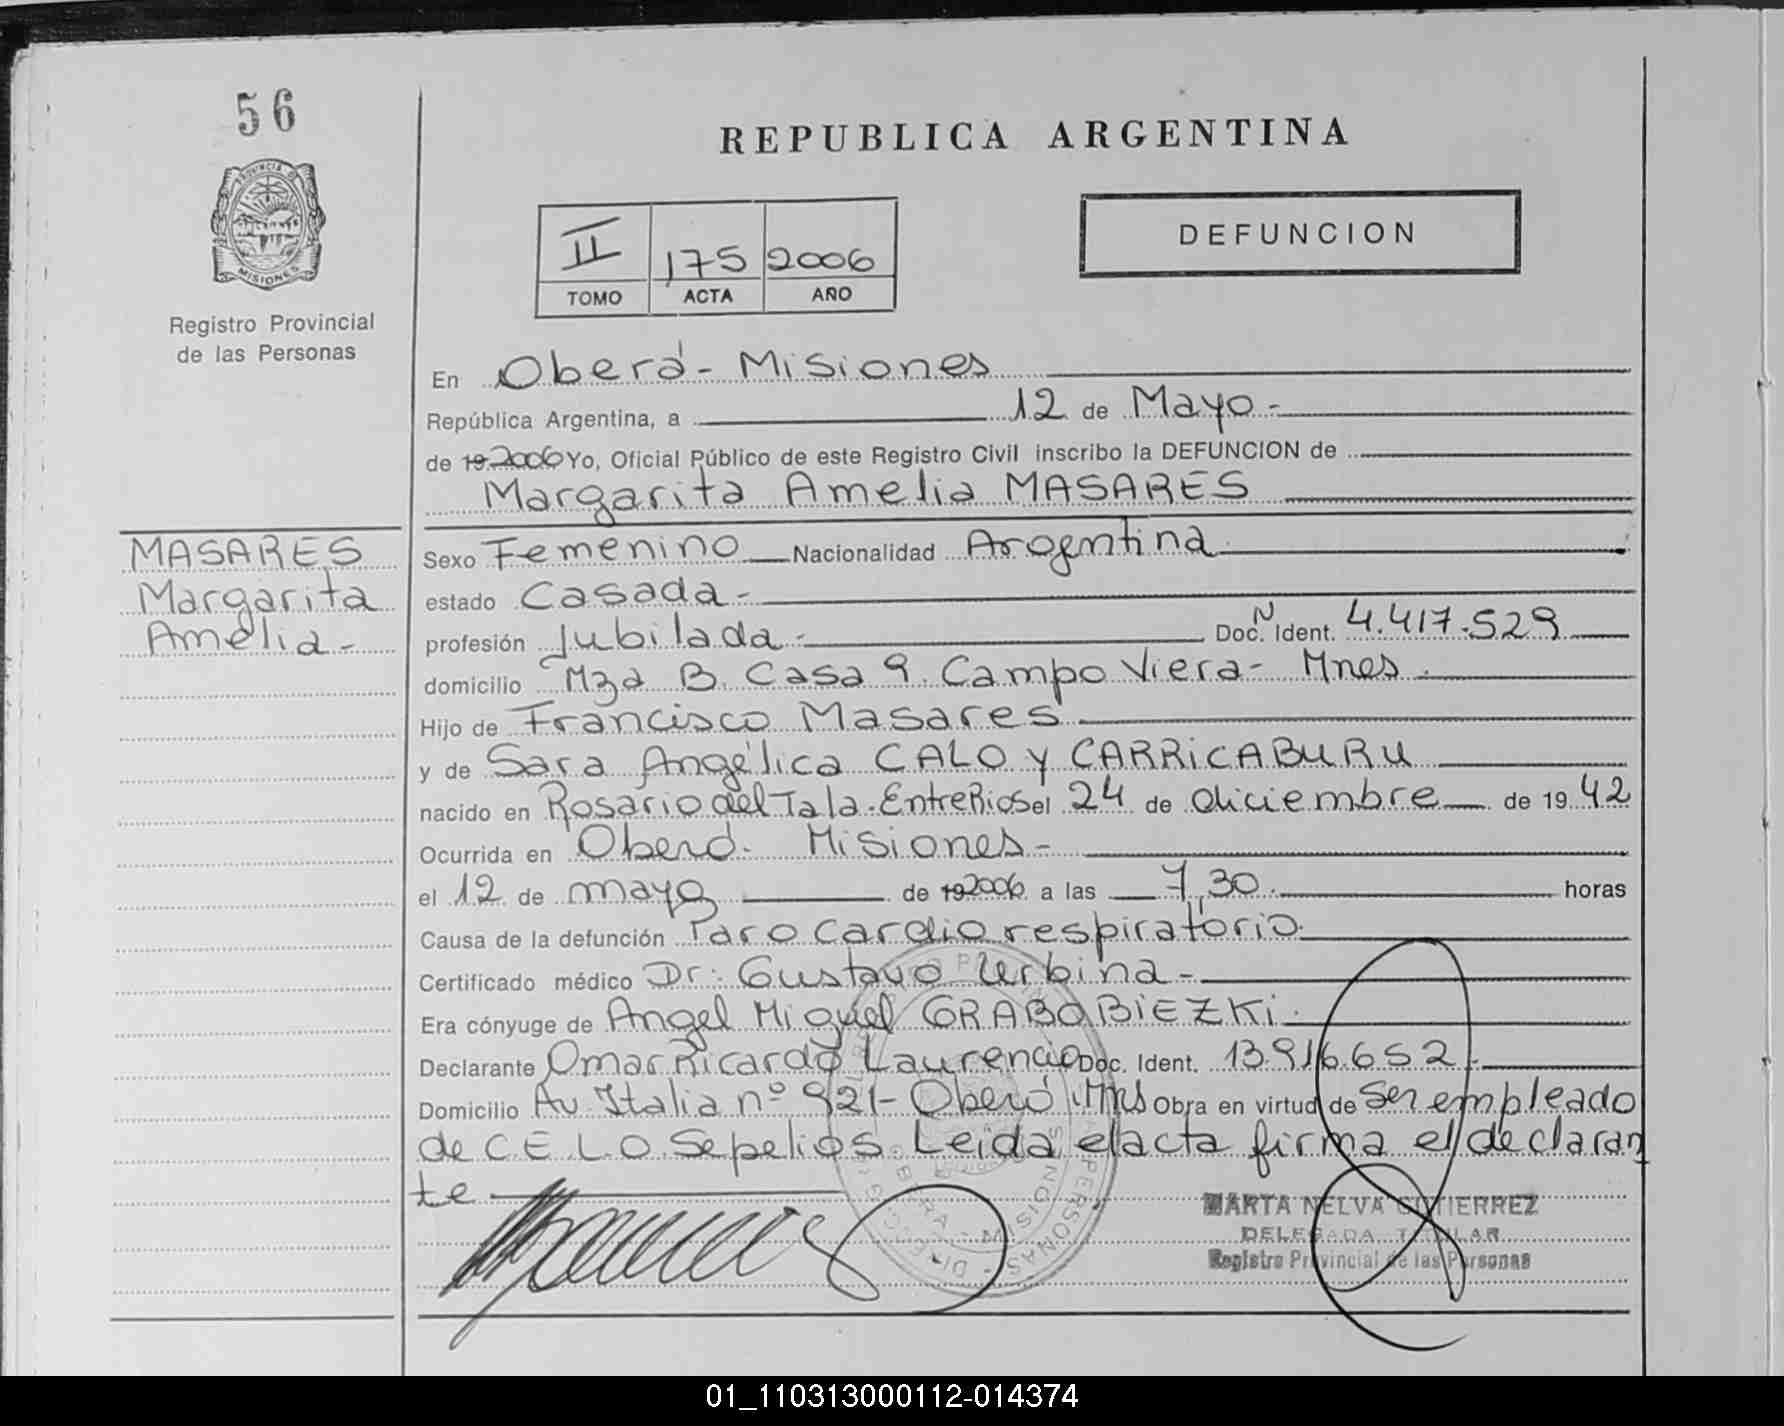 56
PROVINCIA DE
MISIONES
Registro Provincial
de las Personas
REPUBLICA ARGENTINA
II 175 2006
TOMO ACTA AÑO
DEFUNCION
En Oberá - Misiones
República Argentina, a 12 de Mayo -
de 19 2006 Yo, Oficial Público de este Registro Civil inscribo la DEFUNCION de
Margarita Amelia MASARES
MASARES
Margarita
Amelia -
Sexo Femenino Nacionalidad Argentina
estado Casada -
profesión Jubilada - Doc. N Ident. 4.417.529
domicilio Mza B. Casa 9. Campo Viera - Mnes.
Hijo de Francisco Masares
y de Sara Angélica CALO y CARRiCABURU
nacido en Rosario del Tala. Entre Rios el 24 de diciembre de 19 42
Ocurrida en Oberá. Misiones -
el 12 de mayo de 19 2006 a las 7,30. horas
Causa de la defunción Paro cardio respiratorio.
Certificado médico Dr: Gustavo Urbina -
Era cónyuge de Angel Miguel GRABOBiEZKi.
Declarante Omar Ricardo Laurencio Doc. Ident. 13.916.652.
Domicilio Av Italia nº 921 - Oberá Mns Obra en virtud de ser empleado
de C.E.L.O. Sepelios. Leída el acta firma el declaran
te
MARTA NELVA GUTIERREZ
DELEGADA TITULAR
Registro Provincial de las Personas
01_110313000112-014374